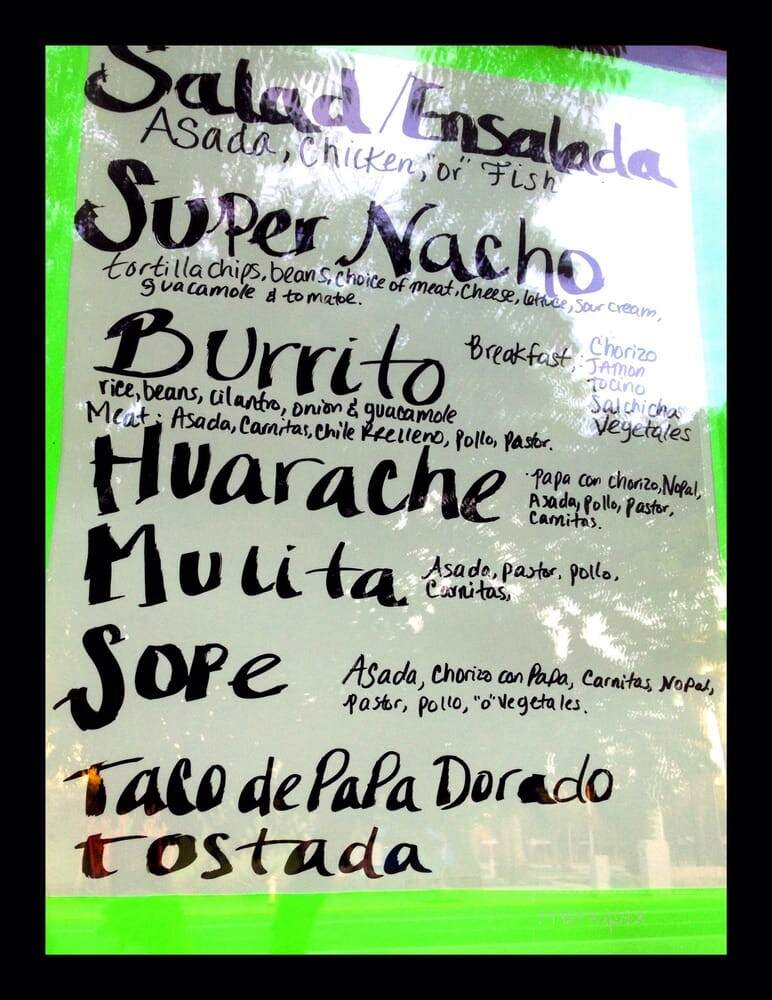 Salad/Ensalada
Asada, Chicken, "or" Fish
Super Nacho
tortilla chips, beans, choice of meat, cheese, lettuce, sour cream,
guacamole & tomatoe.
Burrito
Breakfast: Chorizo
Jamon
Tocino
Salchicha
Vegetales
rice, beans, cilantro, onion & guacamole
Meat: Asada, Carnitas, Chile Rrelleno, pollo, pastor.
Huarache
·papa con chorizo, Nopal,
Asada, pollo, pastor,
Carnitas.
Mulita
Asada, pastor, pollo,
Carnitas,
Sope
Asada, Chorizo con Papa, Carnitas, Nopal,
Pastor, pollo, "o" Vegetales.
Taco de Papa Dorado
tostada